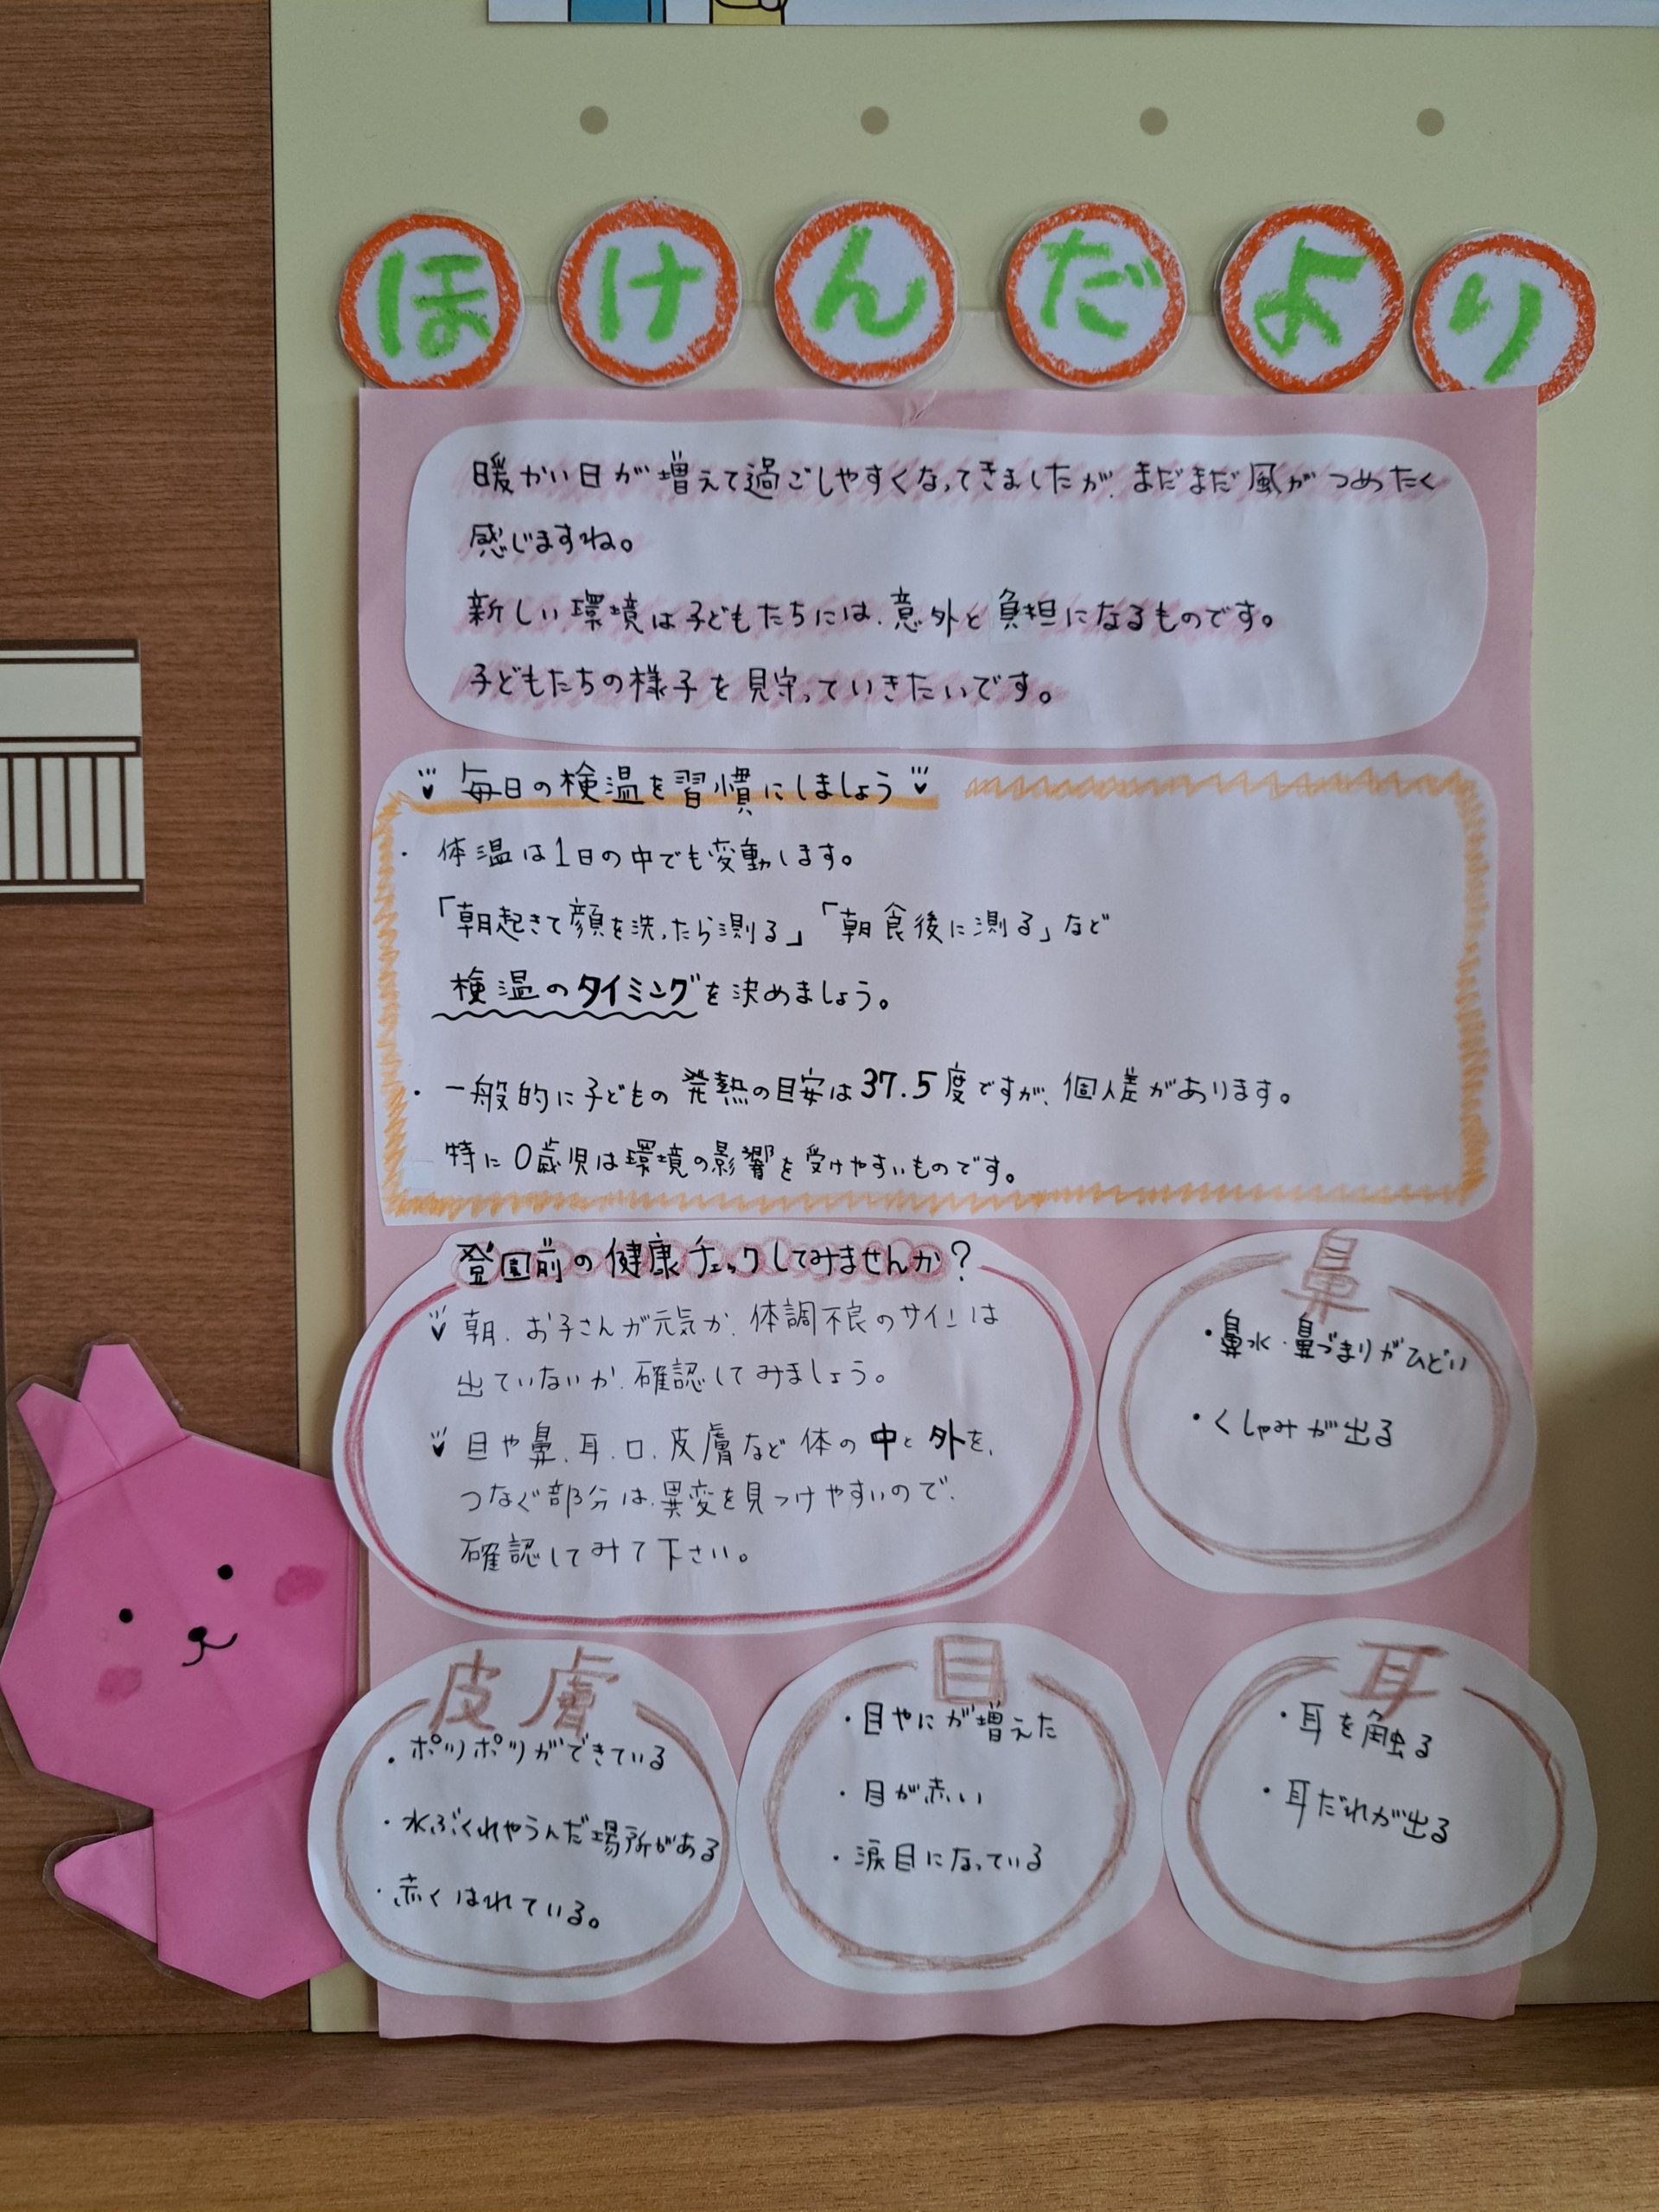 ほけんだより
暖かい日が増えて過ごしやすくなってきましたが、まだまだ風がつめたく
感じますね。
新しい環境は子どもたちには、意外と負担になるものです。
子どもたちの様子を見守っていきたいです。
毎日の検温を習慣にしましょう
・体温は1日の中でも変動します。
「朝起きて顔を洗ったら測る」「朝食後に測る」など
検温のタイミングを決めましょう。
・一般的に子どもの発熱の目安は37.5度ですが、個人差があります。
特に0歳児は環境の影響を受けやすいものです。
登園前の健康チェックしてみませんか?
朝、お子さんが元気か、体調不良のサインは
出ていないか、確認してみましょう。
目や鼻、耳、口、皮膚など体の中と外を、
つなぐ部分は、異変を見つけやすいので、
確認してみて下さい。
鼻
・鼻水・鼻づまりがひどい
・くしゃみが出る
皮膚
・ポツポツができている
・水ぶくれやうんだ場所がある
・赤くはれている。
目
・目やにが増えた
・目が赤い
・涙目になっている
耳
・耳を触る
・耳だれが出る